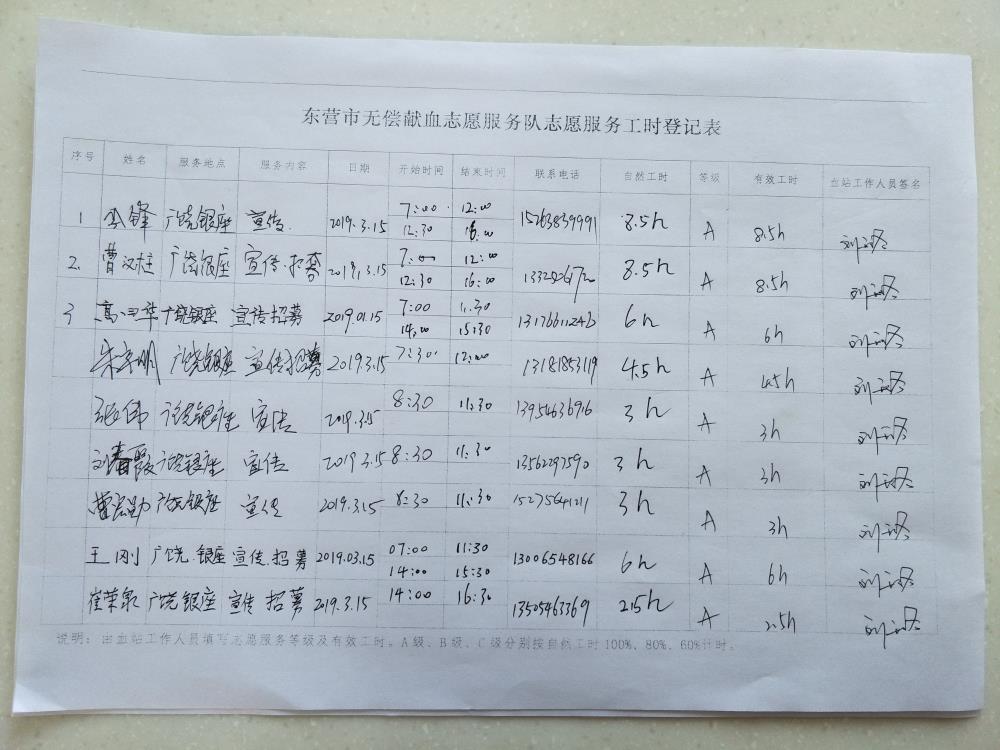 东营市无偿献血志愿服务队志愿服务工时登记表
序号 姓名 服务地点 服务内容 日期 开始时间 结束时间 联系电话 自然工时 等级 有效工时 血站工作人员签名
1 广饶银座 宣传. 2019.3.15 7:00 12:00 12:30 16:00 15263839991 8.5h A 8.5h
2. 曹汉柱 广饶银座 宣传.招募 2019.3.15 7:00 12:00 12:30 16:00 8.5h A 8.5h
3 广饶银座 宣传招募 2019.01.15 7:00 11:30 14:00 15:30 6h A 6h
广饶银座 宣传招募 2019.3.15 7:30 12:00 13181853119 4.5h A 4.5h
张伟 广饶银座 宣传 2019.3.15 8:30 11:30 13954636916 3h A 3h
刘春霞 广饶银座 宣传 2019.3.15 8:30 11:30 13562297590 3h A 3h
广饶银座 宣传 2019.3.15 8:30 11:30 15275641211 3h A 3h
王刚 广饶.银座 宣传.招募 2019.03.15 07:00 11:30 14:00 15:30 13006548166 6h A 6h
崔荣泉 广饶银座 宣传 招募 2019.3.15 14:00 16:30 13505463369 2.5h A 2.5h
说明：由血站工作人员填写志愿服务等级及有效工时。A级、B级、C级分别按自然工时100%、80%、60%计时。